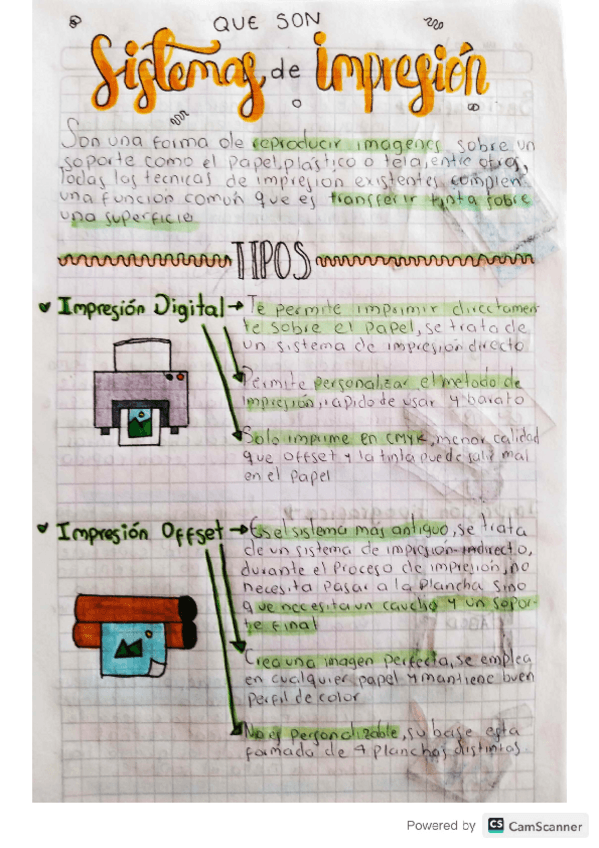 QUE SON
Sistemas de impresión
Son una forma de reproducir imagenes sobre un
soporte como el papel, plástico o tela, entre otros,
Todas las tecnicas de impresion existentes complen
una función común que es transferir tinta sobre
una superficie
TIPOS
Impresión Digital → Te permite imprimir directamen-
te sobre el papel, se trata de
un sistema de impresión directo
Permite personalizar el metodo de
impresión, rapido de usar y barato
Solo imprime en CMYK, menor calidad
que offset y la tinta puede salir mal
en el papel
Impresión Offset → Es el sistema más antiguo, se trata
de un sistema de impresion indirecto,
durante el proceso de impresión, no
necesita pasar a la plancha sino
que necesita un caucho y un sopor-
te final
Crea una imagen perfecta, se emplea
en cualquier papel y mantiene buen
perfil de color
No es personalizable, su base esta
formado de 4 planchas distintas
Powered by CS CamScanner